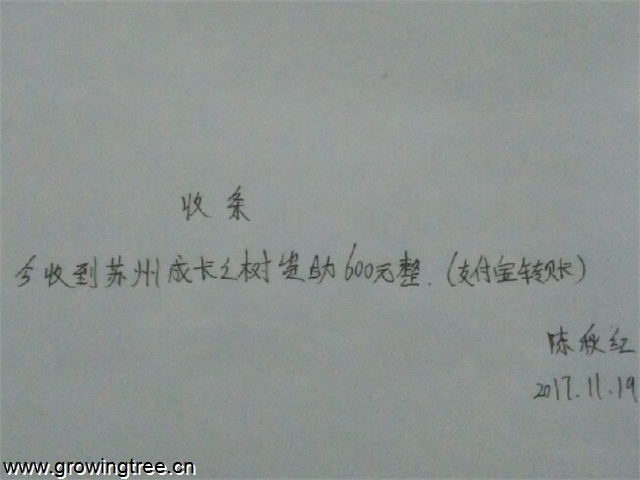 收条
今收到苏州成长之树资助600元整.(支付宝转账)
陈秋红
2017.11.19
www.growingtree.cn